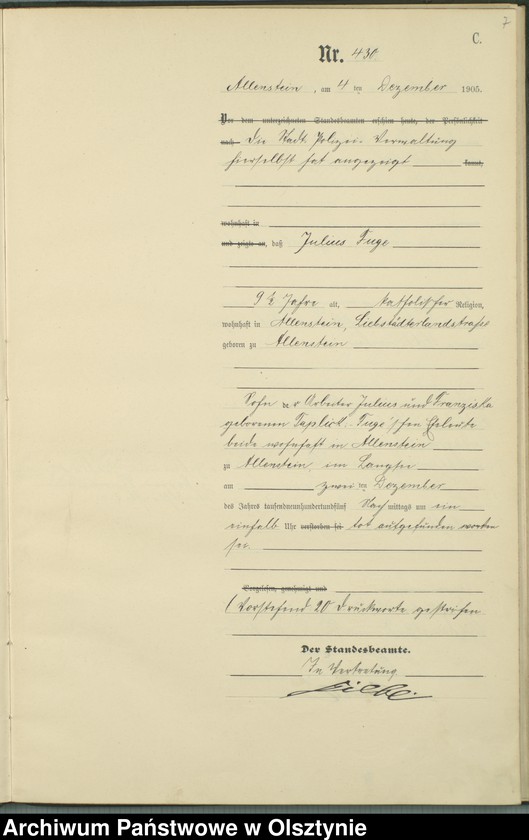 7
C.
Nr. 430.
Allenstein, am 4 ten Dezember 1905.
Vor dem unterzeichneten Standesbeamten erschien heute, der Persönlichkeit
nach Die Städt. Polizei-Verwaltung
hierselbst hat angezeigt kannt,
wohnhaft in
und zeigte an, daß Julius Tuge
9½ Jahre alt, katholischer Religion,
wohnhaft in Allenstein, Liebstädterlandstraße
geboren zu Allenstein
Sohn der Arbeiter Julius und Franziska
geborenen Tuge'schen Eheleute
beide wohnhaft in Allenstein
zu Allenstein, im Langsee
am zwei ten Dezember
des Jahres tausendneunhundertundfünf Nachmittags um ein
einhalb Uhr verstorben sei tot aufgefunden worden
sei.
Vorgelesen, genehmigt und
(Vorstehend 20 Druckworte gestrichen
Der Standesbeamte.
In Vertretung
Archiwum Państwowe w Olsztynie